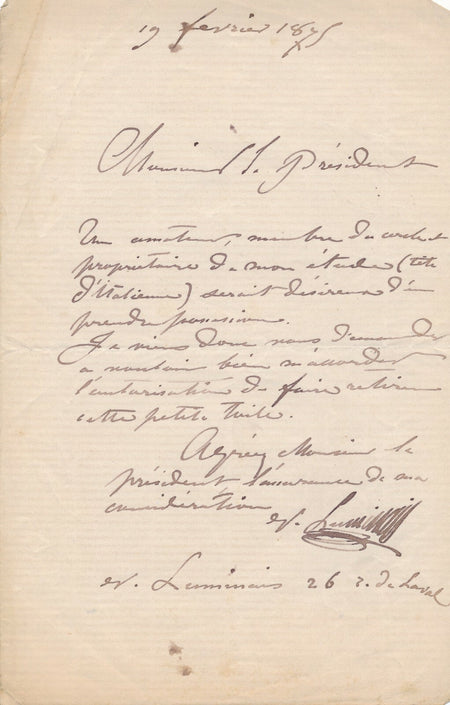 19 février 1875
Monsieur le Président
Un amateur, membre du cercle et
propriétaire de mon étude (tête
d'Italienne) serait désireux d'en
prendre possession.
Je viens donc vous demander
a vouloir bien m'accorder
l'autorisation de faire retirer
cette petite toile.
Agréez Monsieur le
président l'assurance de ma
considération
ev. Luminais
ev. Luminais 26 r. de Laval